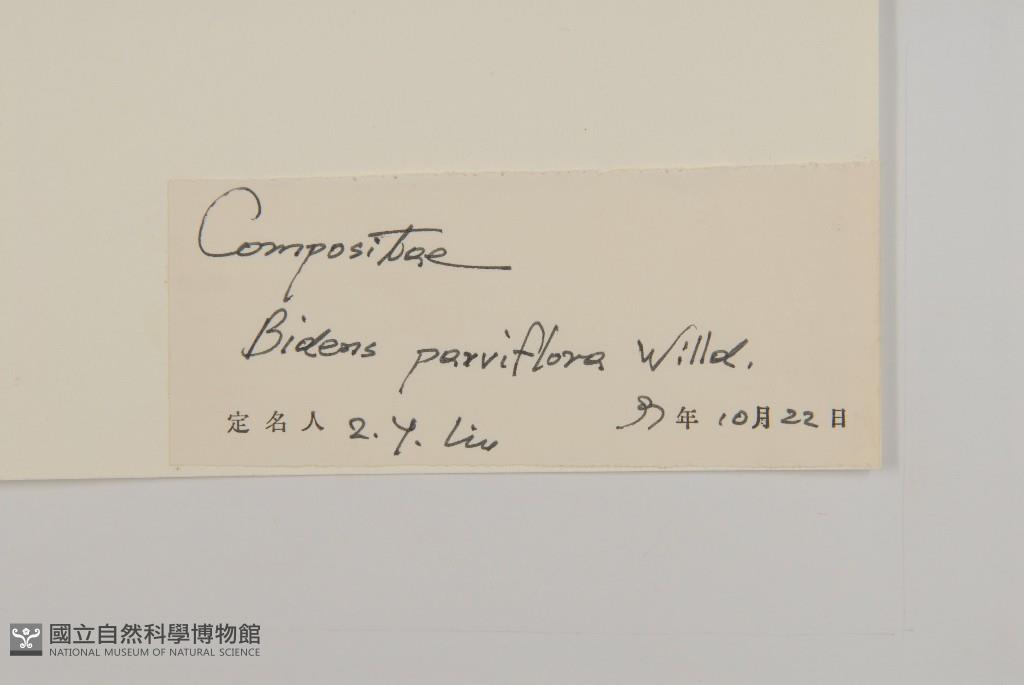 Compositae
Bidens parviflora Willd.
定名人 Z. Y. Liu 年 10月22日
國立自然科學博物館
NATIONAL MUSEUM OF NATURAL SCIENCE